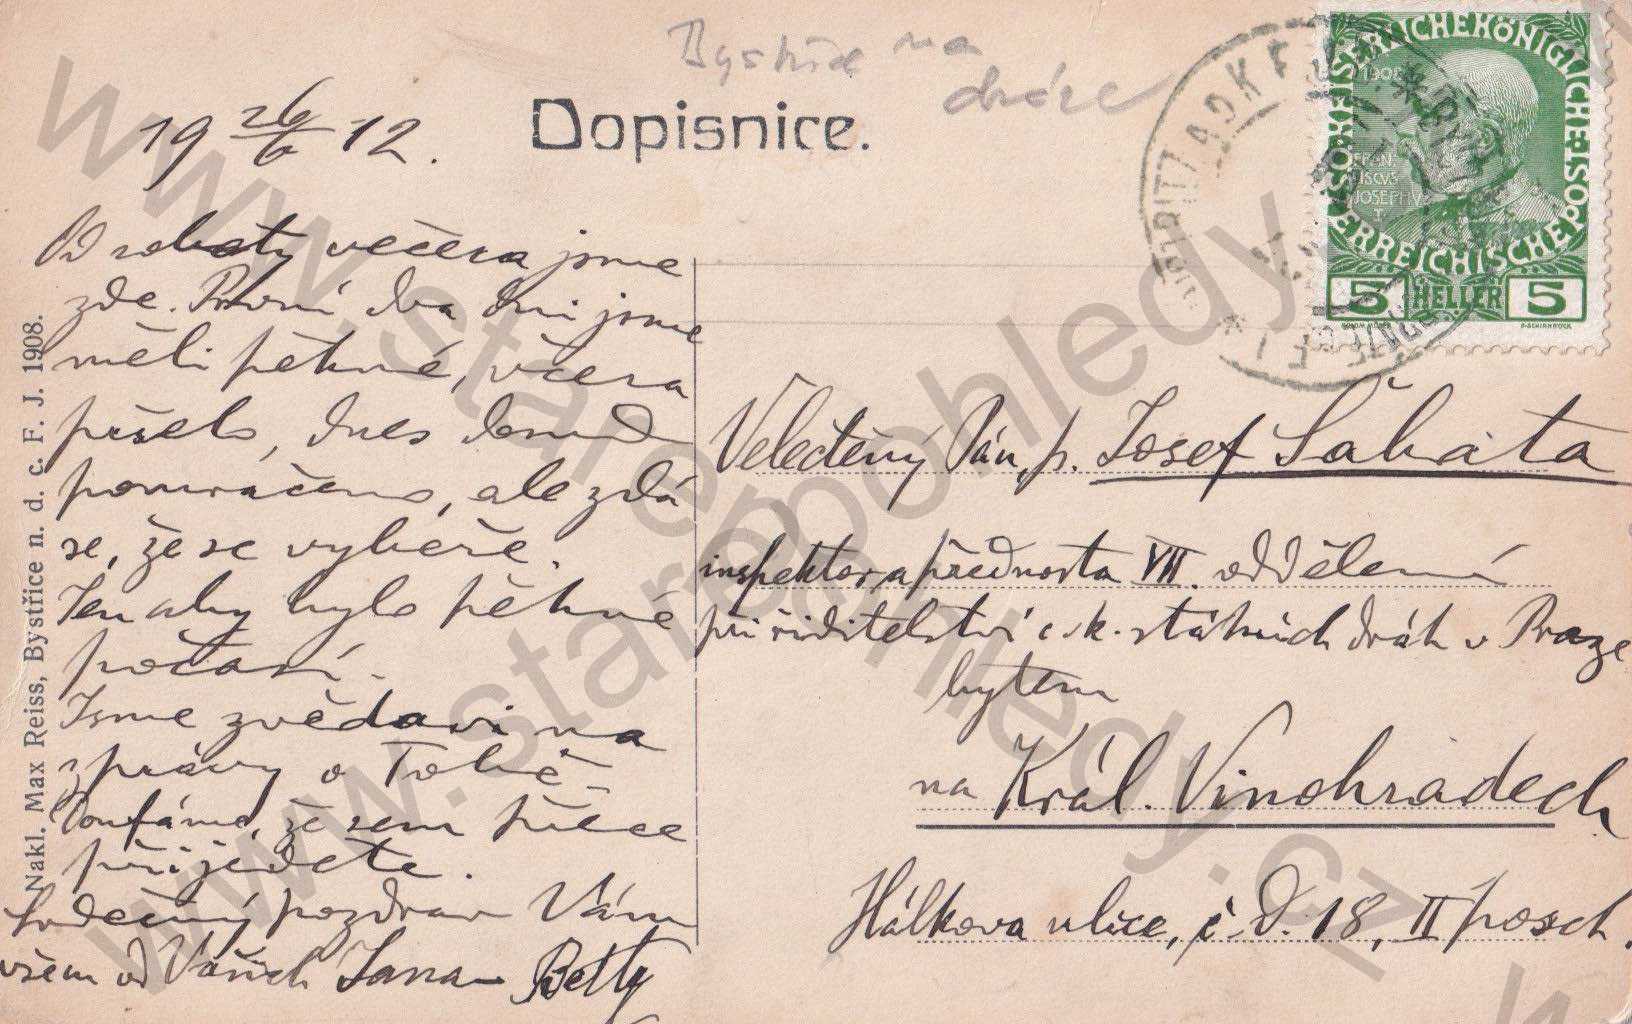 Bystřice na
dráze
Dopisnice.
19 26/6 12.
Od soboty večera jsme
zde. První dva dni jsme
měli pěkné, včera
pršelo, dnes
pomračeno, ale zdá
se, že se vybere.
Jen aby bylo pěkné
počasí.
Jsme zvědavi na
zprávy o
Doufáme, že sem přece
přijedete.
Srdečný pozdrav Vám
všem od Vašich Jana Betty
Nakl. Max Reiss, Bystřice n. d. c. F. J. 1908.
ÖSTERREICHISCHE POST
KAISERLICHE KÖNIGLICHE
1908
FRANCISCUS
JOSEPHVS
I.
5 HELLER 5
BISTRITZ A D K F J B
Veledtěný Pán, p. Josef Šabata
inspektor a přednosta VII. oddělení
při ředitelství c. k. státních dráh v Praze
bytem
na Král. Vinohradech
Hálkova ulice, č. d. 18, II posch.
www.starepohledy.cz
www.starepohledy.cz